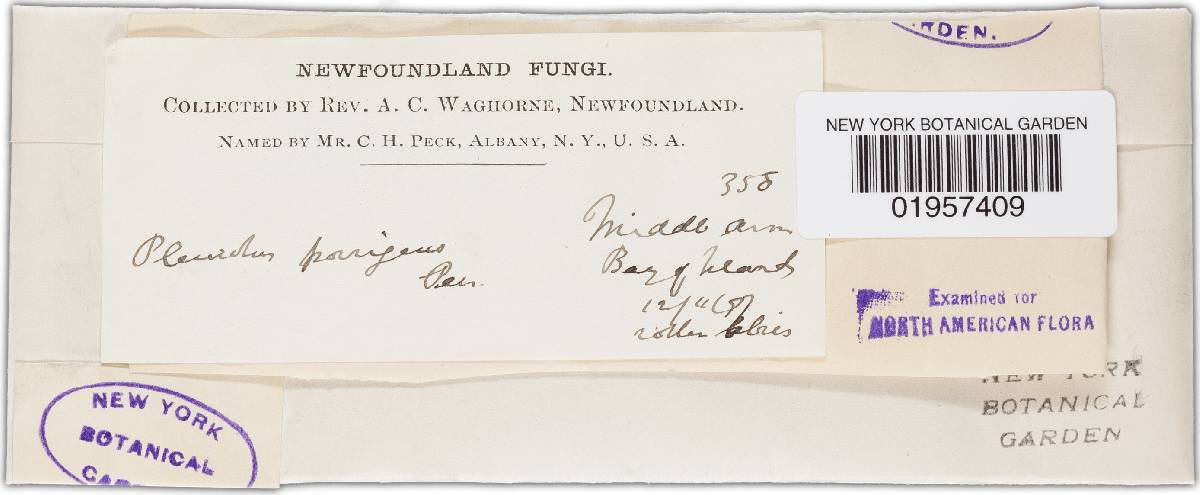 RDEN.
NEWFOUNDLAND FUNGI.
COLLECTED BY REV. A. C. WAGHORNE, NEWFOUNDLAND.
NAMED BY MR. C. H. PECK, ALBANY, N. Y., U. S. A.
NEW YORK BOTANICAL GARDEN
01957409
358
Middle arm
Bay of Islands
Pleurotus porrigens
Pers.
Examined for
NORTH AMERICAN FLORA
NEW YORK
BOTANICAL
GARDEN
NEW YORK
BOTANICAL